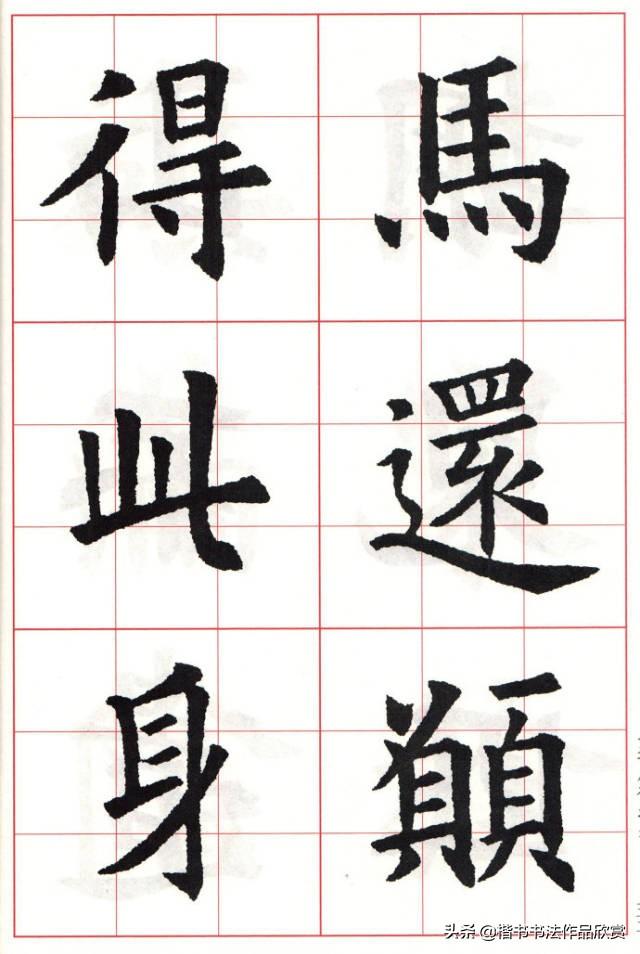 馬還願
得此身
头条 @楷书书法作品欣赏